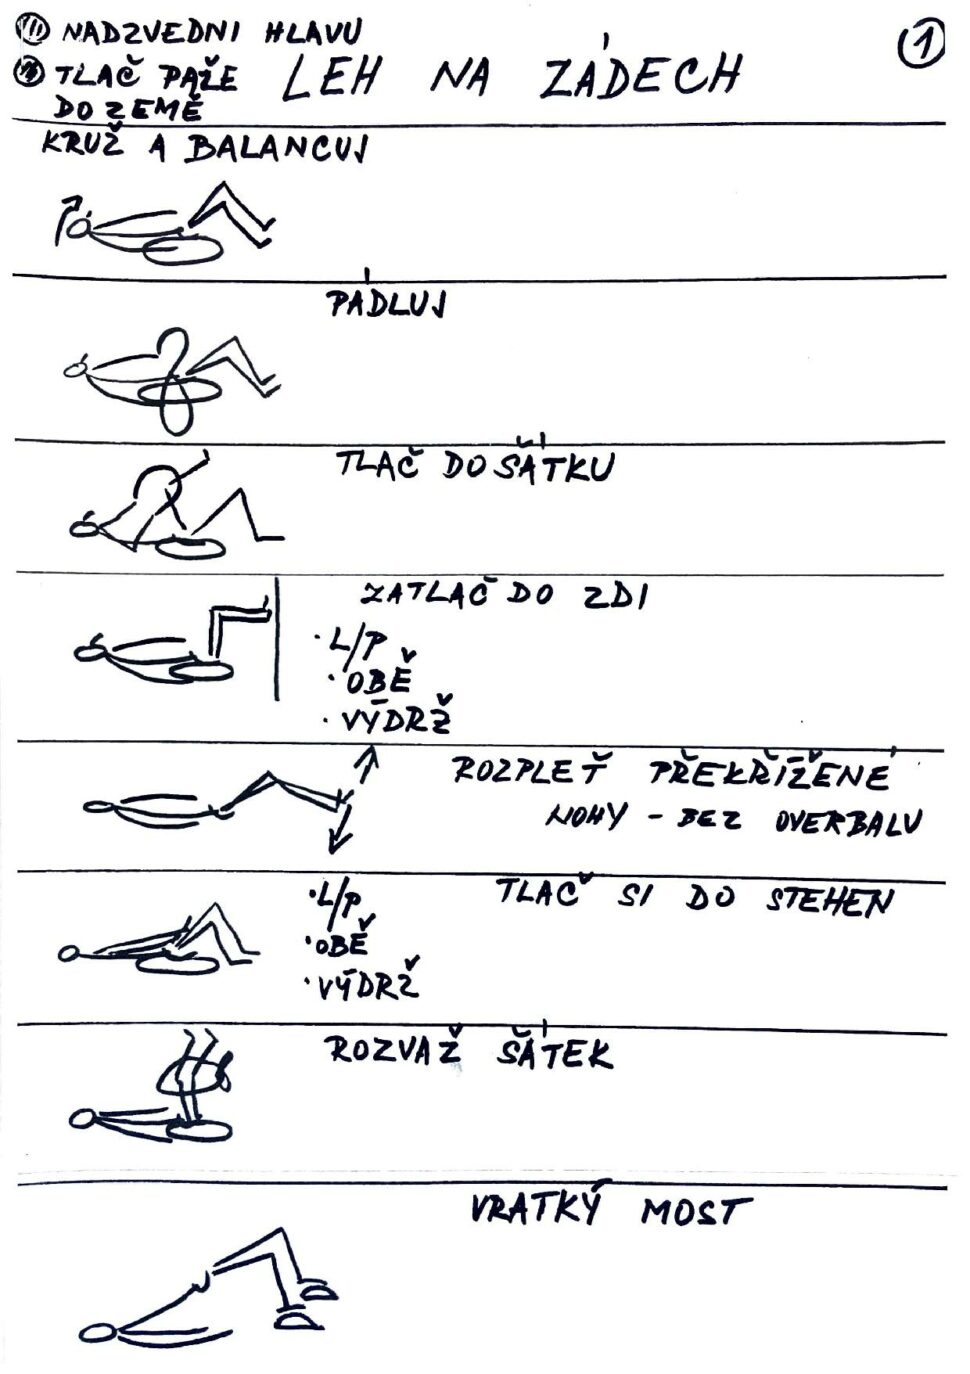 NADZVEDNI HLAVU
TLAČ PAŽE
DO ZEMĚ
LEH NA ZÁDECH
1
KRUŽ A BALANCUJ
PÁDLUJ
TLAČ DO ŠÁTKU
ZATLAČ DO ZDI
· L/P
· OBĚ
· VÝDRŽ
ROZPLEŤ PŘEKŘÍŽENÉ
NOHY - BEZ OVERBALU
TLAČ SI DO STEHEN
· L/P
· OBĚ
· VÝDRŽ
ROZVAŽ ŠÁTEK
VRATKÝ MOST